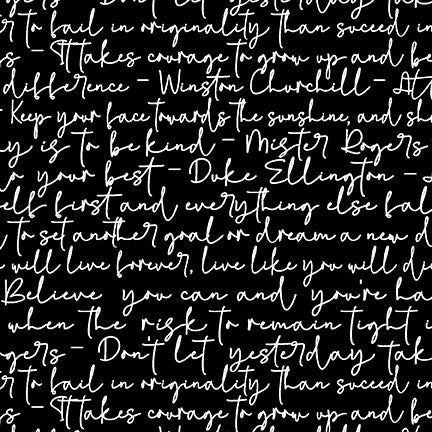 Don't let yesterday take
r to fail in originality than suceed in
s - It takes courage to grow up and be
difference - Winston Churchill - Att
Keep your face towards the sunshine, and sh
y is to be kind - Mister Rogers
o your best - Duke Ellington - L
elf first and everything else fal
to set another goal or dream a new d
will live forever, live like you will die
Believe you can and you're ha
when the risk to remain tight i
ogers - Don't let yesterday tak
r to fail in originality than suceed in
s - It takes courage to grow up and be